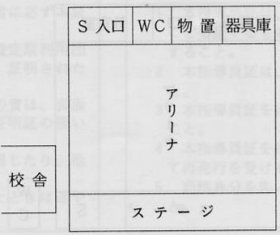 S 入口 WC 物置 器具庫
アリーナ
校舎
ステージ